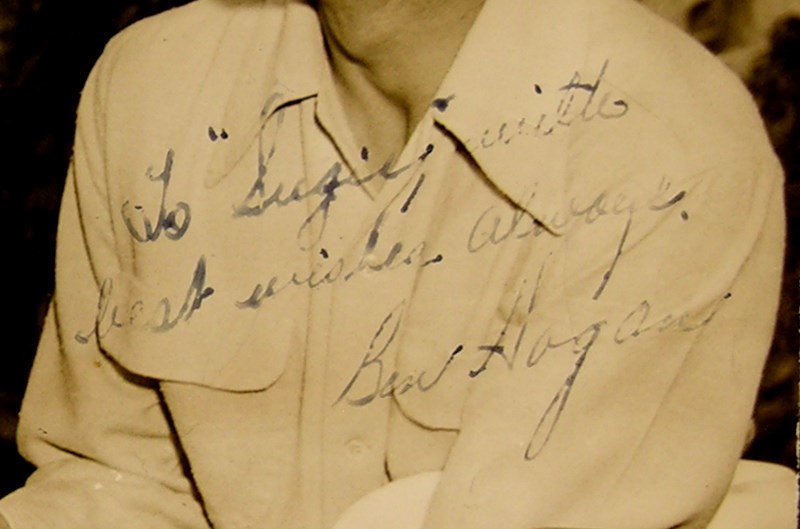 To "Suzy" with
best wishes always.
Ben Hogan